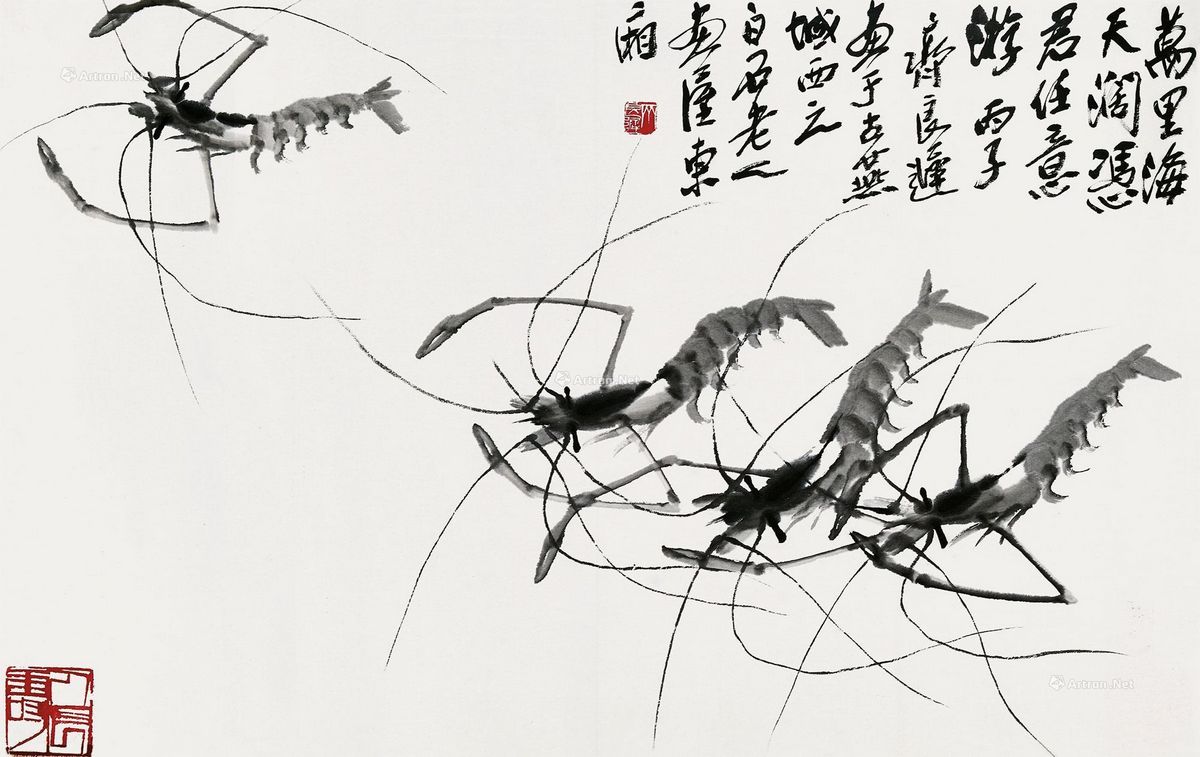 萬里海
天闊憑
君任意
游 丙子
齊良遲
畫于古燕
城西之
白石老人
畫屋東
廂
Artron.Net
Artron.Net
Artron.Net